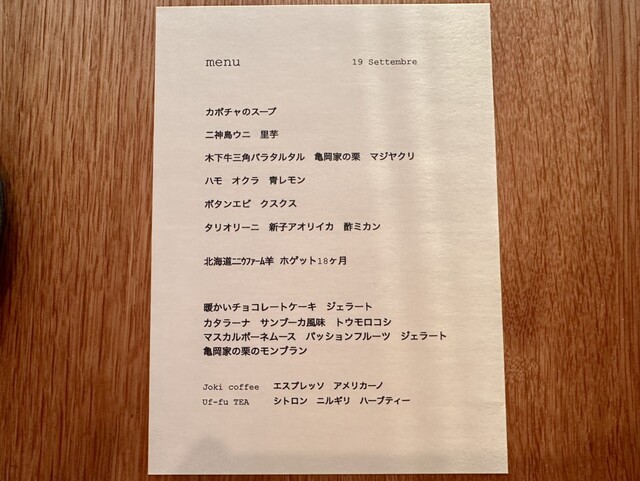 menu 19 Settembre
カボチャのスープ
二神島ウニ 里芋
木下牛三角バラタルタル 亀岡家の栗 マジヤクリ
ハモ オクラ 青レモン
ボタンエビ クスクス
タリオリーニ 新子アオリイカ 酢ミカン
北海道ニウファーム羊 ホゲット18ヶ月
暖かいチョコレートケーキ ジェラート
カタラーナ サンブーカ風味 トウモロコシ
マスカルポーネムース パッションフルーツ ジェラート
亀岡家の栗のモンブラン
Joki coffee エスプレッソ アメリカーノ
Uf-fu TEA シトロン ニルギリ ハーブティー